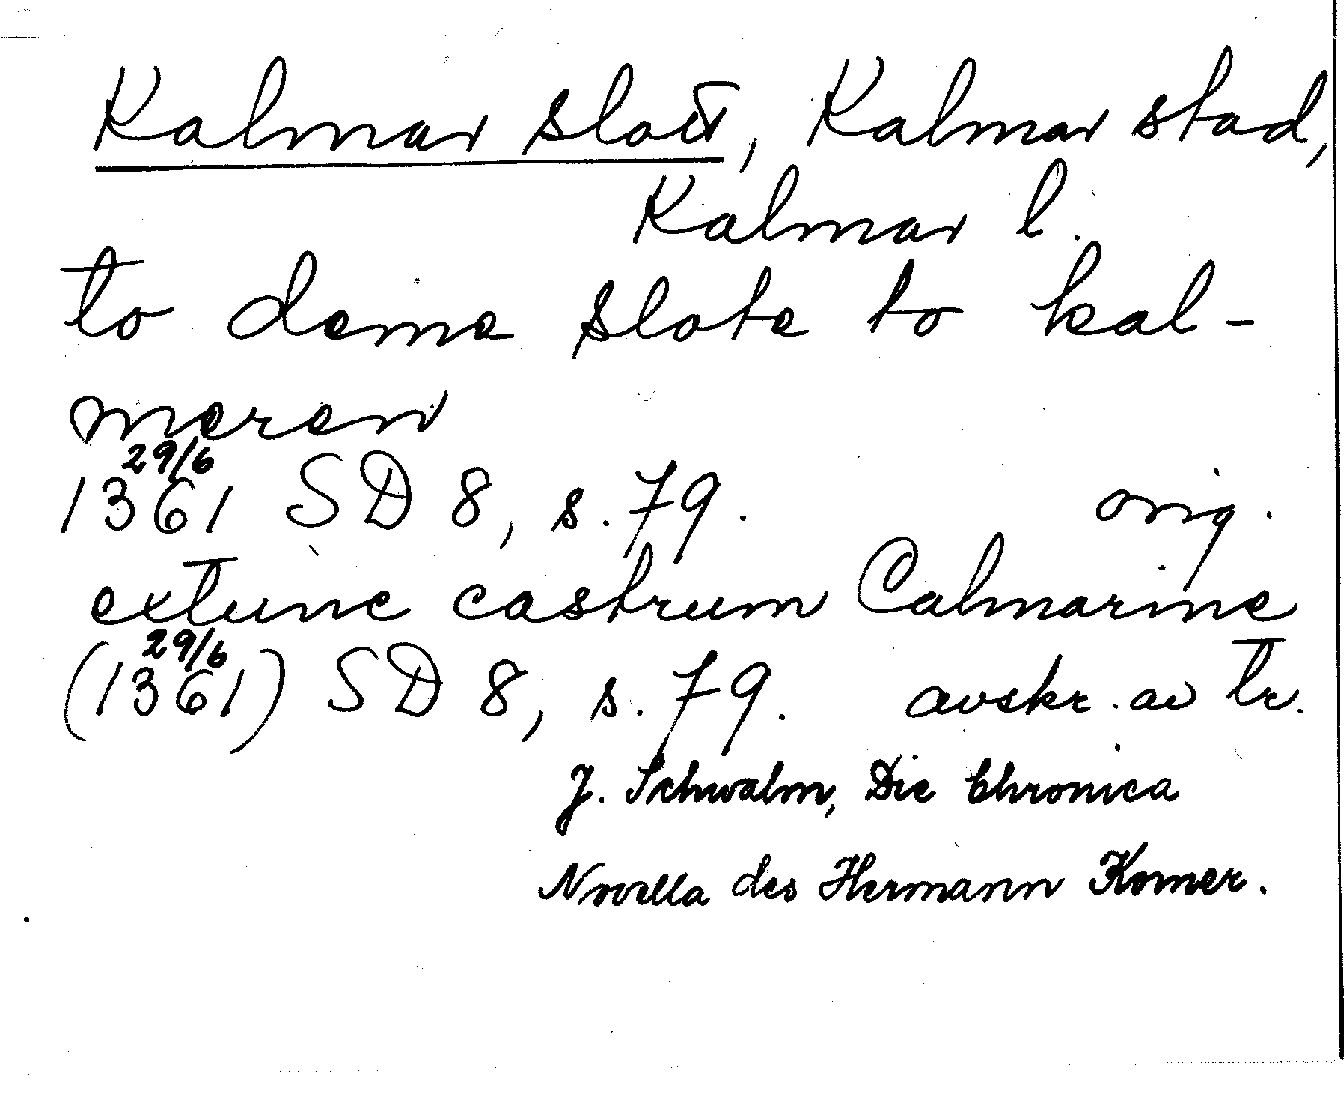 Kalmar slott, Kalmar stad,
Kalmar l.
to deme slote to kal-
meren
29/6
1361 SD 8, s. 79. orig.
extunc castrum Calmarine
29/6
(1361) SD 8, s. 79. avskr. av tr.
J. Schwalm, Die Chronica
Novella des Hermann Korner.